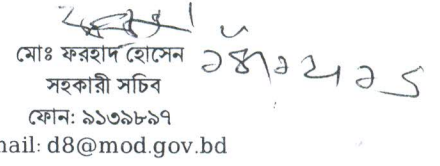 মোঃ ফরহাদ হোসেন
সহকারী সচিব
ফোন: ৯১৩৯৮৯৭
nail: d8@mod.gov.bd